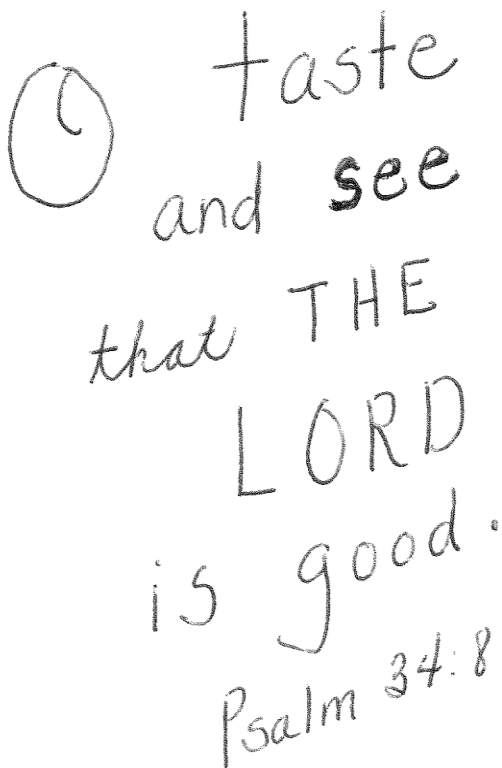 O taste
and see
that THE
LORD
is good.
Psalm 34:8